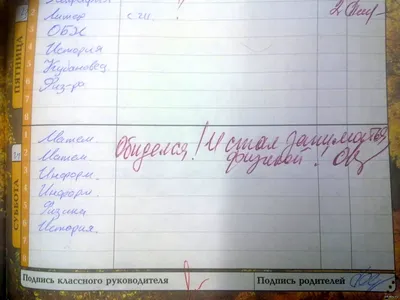 Литер с.211.
ОБЖ
История
Кубановед.
Физ-ра
ПЯТНИЦА
Матем.
Матем.
Информ.
Информ.
Физика
История.
Обиделся! И стал заниматься
физикой!
СУББОТА
Подпись классного руководителя
Подпись родителей